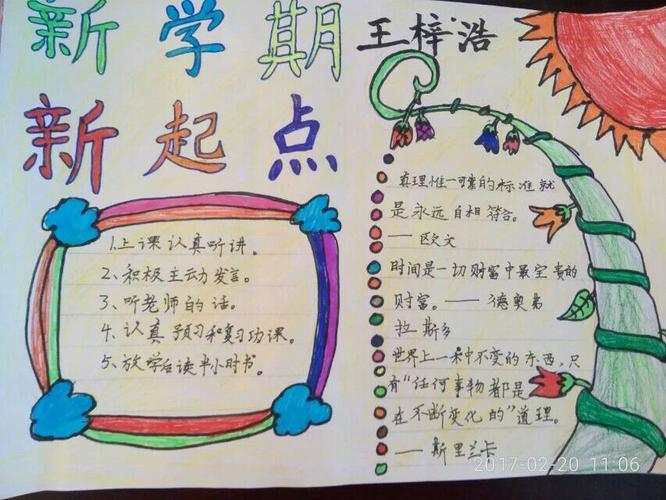 新学期
新起点
王梓浩
1.上课认真听讲。
2、积极主动发言。
3、听老师的话。
4、认真预习和复习功课。
5、放学后读半小时书。
真理惟一可靠的标准就
是永远自相符合。
——欧文
时间是一切财富中最宝贵的
财富。——德奥弗
拉斯多
世界上一术中不变的东西,只
有“任何事物都是
在不断变化的”道理。
——斯里兰卡
2017-02-20 11:06